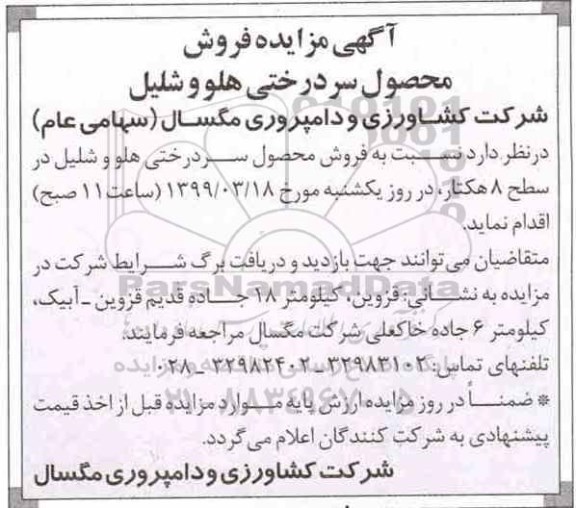 آگهی مزایده فروش
محصول سردرختی هلو و شلیل
شرکت کشاورزی و دامپروری مگسال (سهامی عام)
درنظر دارد نسبت به فروش محصول سردرختی هلو و شلیل در
سطح ۸ هکتار، در روز یکشنبه مورخ ۱۳۹۹/۰۳/۱۸ (ساعت ۱۱ صبح)
اقدام نماید.
متقاضیان می‌توانند جهت بازدید و دریافت برگ شرایط شرکت در
مزایده به نشانی: قزوین، کیلومتر ۱۸ جاده قدیم قزوین - آبیک،
کیلومتر ۶ جاده خاکعلی شرکت مگسال مراجعه فرمایند.
تلفنهای تماس: ۳۲۹۸۳۱۰۲ - ۳۲۹۸۲۴۰۲ - ۰۲۸
* ضمناً در روز مزایده ارزش پایه موارد مزایده قبل از اخذ قیمت
پیشنهادی به شرکت کنندگان اعلام می‌گردد.
شرکت کشاورزی و دامپروری مگسال
ParsNamadData